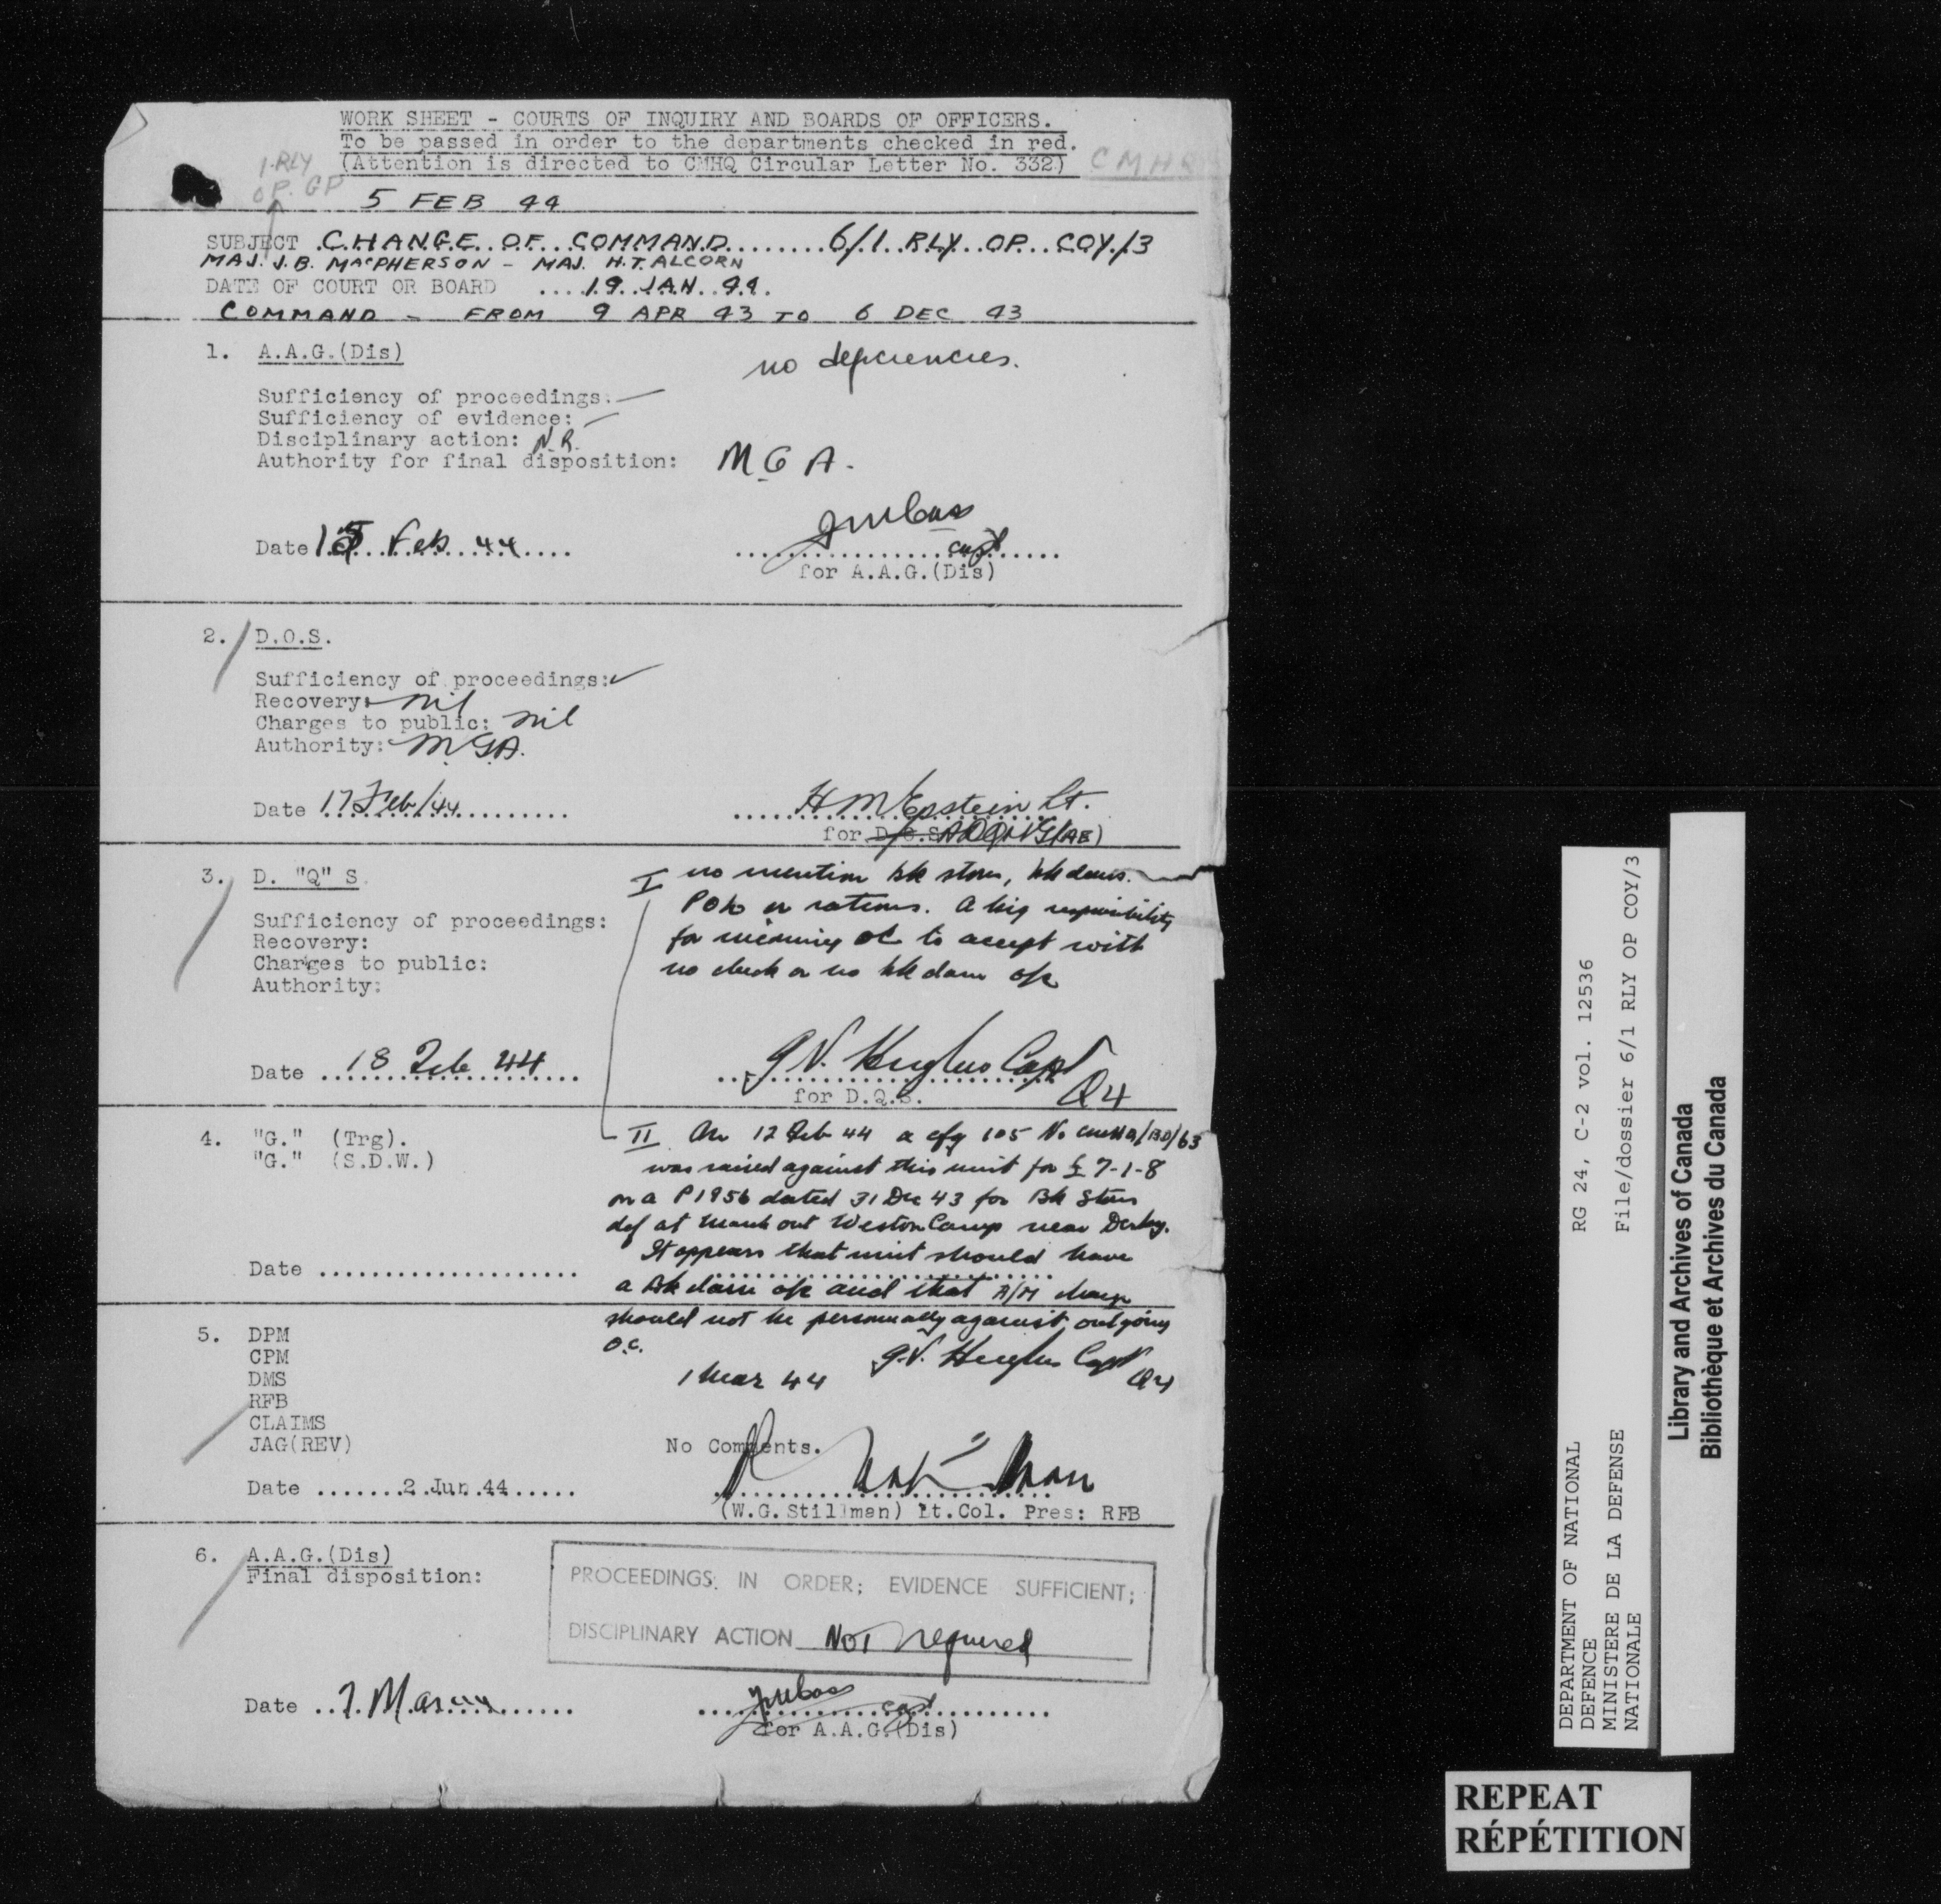 WORK SHEET - COURTS OF INQUIRY AND BOARDS OF OFFICERS.
To be passed in order to the departments checked in red.
(Attention is directed to CMHQ Circular Letter No. 332)
CMHQ
1 RLY
OP. GP
5 FEB 44
SUBJECT .CHANGE..OF..COMMAND........6/1..RLY..OP..COY/3
MAJ. J.B. MACPHERSON - MAJ. H.T. ALCORN
DATE OF COURT OR BOARD ....19.JAN..44.
COMMAND - FROM 9 APR 43 TO 6 DEC 43
1. A.A.G.(Dis)
no deficiencies.
Sufficiency of proceedings:
Sufficiency of evidence:
Disciplinary action: N.R.
Authority for final disposition: M G A.
Date 15 Feb 44
capt
for A.A.G.(Dis)
2. D.O.S.
Sufficiency of proceedings:
Recovery: nil
Charges to public: nil
Authority: M.G.A.
Date 17 Feb/44
H M Epstein Lt.
for D.O.S.
3. D. "Q" S.
I no mention bk stores, bk dams.
POL or rations. A big responsibility
for incoming OC to accept with
no check or no bk dam a/c
Sufficiency of proceedings:
Recovery:
Charges to public:
Authority:
Date 18 Feb 44
G.V. Hughes Capt
Q4
for D.Q.S.
4. "G." (Trg).
"G." (S.D.W.)
II On 12 Feb 44 a cfq 105 No CMHQ/BD/63
was raised against this unit for £ 7-1-8
on a P1956 dated 31 Dec 43 for Bk Stores
def at march out Weston Camp near Derby.
It appears that unit should have
a Bk dam a/c and that A/M charge
should not be personally against outgoing
O.C.
Date
G.V. Hughes Capt
Q4
1 Mar 44
5. DPM
CPM
DMS
RFB
CLAIMS
JAG(REV)
No Comments.
Date .......2.Jun.44.....
(W.G.Stillman) Lt.Col. Pres: RFB
6. A.A.G.(Dis)
Final disposition:
PROCEEDINGS: IN ORDER; EVIDENCE SUFFICIENT;
DISCIPLINARY ACTION NOT required
Date
capt
for A.A.G.(Dis)
RG 24, C-2 vol. 12536
File/dossier 6/1 RLY OP COY/3
DEPARTMENT OF NATIONAL
DEFENCE
MINISTERE DE LA DEFENSE
NATIONALE
Library and Archives of Canada
Bibliothèque et Archives du Canada
REPEAT
RÉPÉTITION